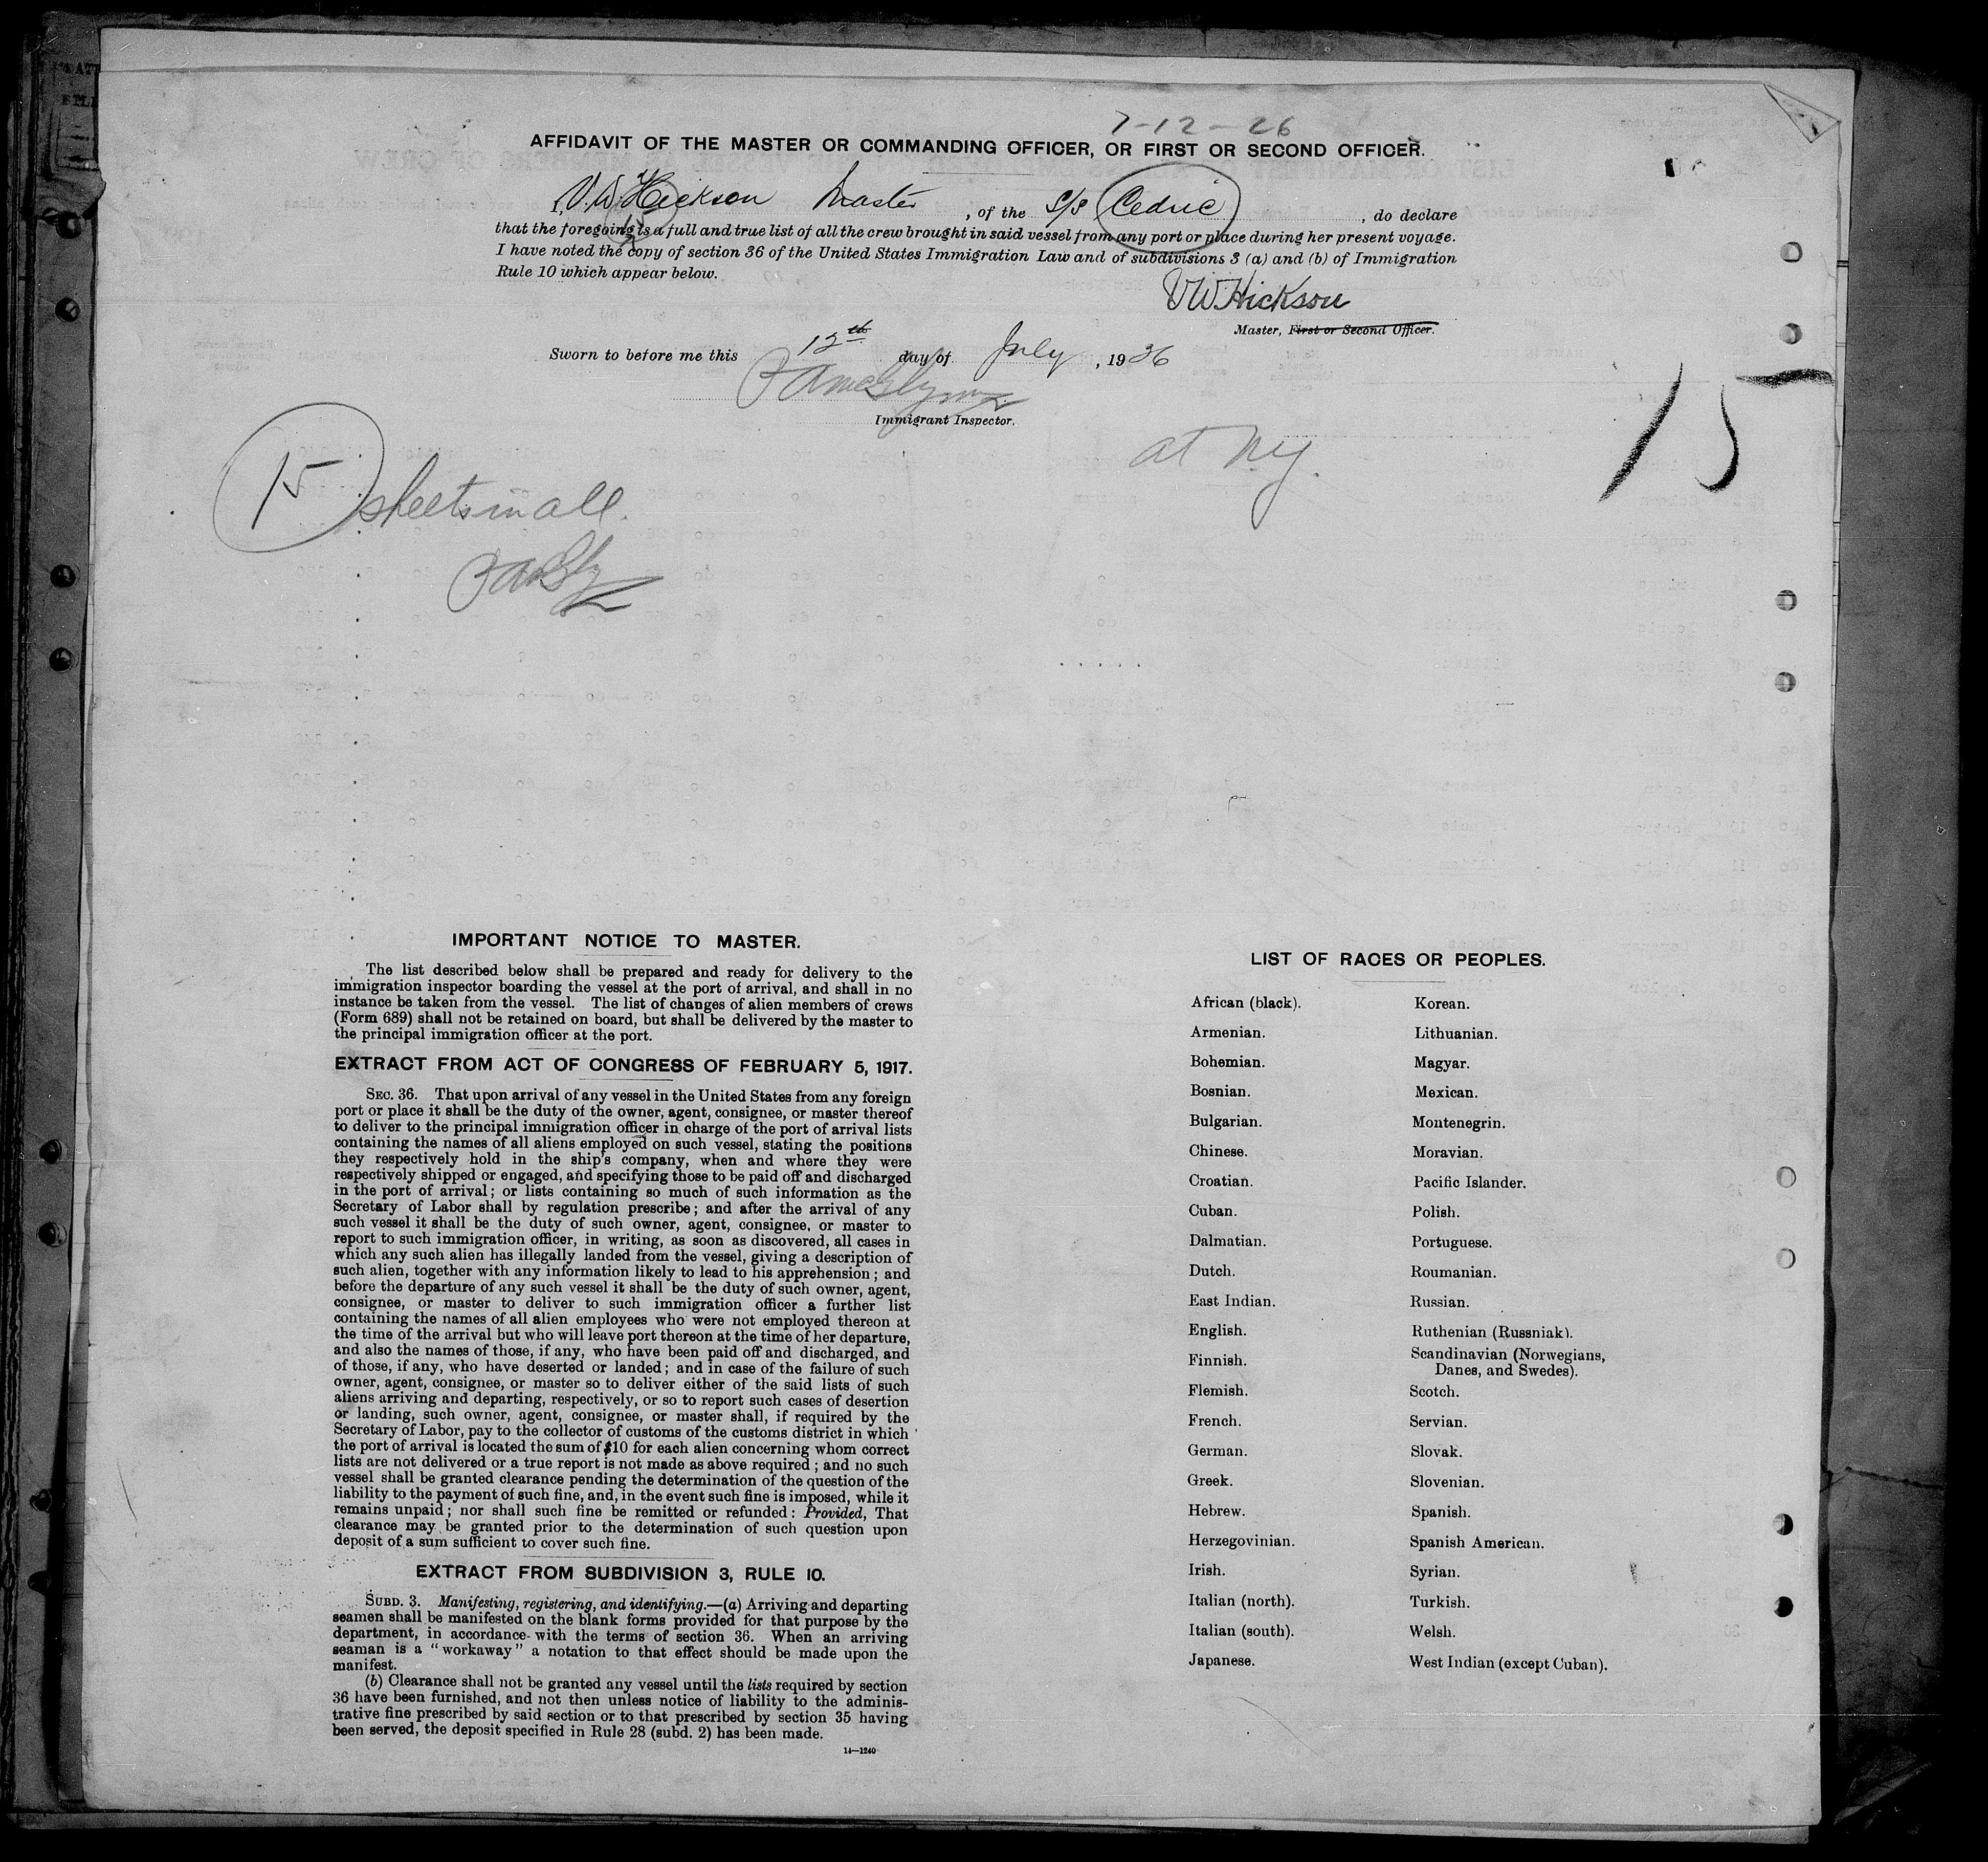 7-12-26
AFFIDAVIT OF THE MASTER OR COMMANDING OFFICER, OR FIRST OR SECOND OFFICER.
I, V.W. Hickson Master, of the S/S Cedric, do declare
15
that the foregoing is a full and true list of all the crew brought in said vessel from any port or place during her present voyage.
I have noted the copy of section 36 of the United States Immigration Law and of subdivisions 3 (a) and (b) of Immigration
Rule 10 which appear below.
VW Hickson
Master, First or Second Officer.
Sworn to before me this 12th day of July, 1926
Immigrant Inspector.
15
at N.Y.
15 sheets in all.
IMPORTANT NOTICE TO MASTER.
The list described below shall be prepared and ready for delivery to the
immigration inspector boarding the vessel at the port of arrival, and shall in no
instance be taken from the vessel. The list of changes of alien members of crews
(Form 689) shall not be retained on board, but shall be delivered by the master to
the principal immigration officer at the port.
EXTRACT FROM ACT OF CONGRESS OF FEBRUARY 5, 1917.
SEC. 36. That upon arrival of any vessel in the United States from any foreign
port or place it shall be the duty of the owner, agent, consignee, or master thereof
to deliver to the principal immigration officer in charge of the port of arrival lists
containing the names of all aliens employed on such vessel, stating the positions
they respectively hold in the ship's company, when and where they were
respectively shipped or engaged, and specifying those to be paid off and discharged
in the port of arrival; or lists containing so much of such information as the
Secretary of Labor shall by regulation prescribe; and after the arrival of any
such vessel it shall be the duty of such owner, agent, consignee, or master to
report to such immigration officer, in writing, as soon as discovered, all cases in
which any such alien has illegally landed from the vessel, giving a description of
such alien, together with any information likely to lead to his apprehension; and
before the departure of any such vessel it shall be the duty of such owner, agent,
consignee, or master to deliver to such immigration officer a further list
containing the names of all alien employees who were not employed thereon at
the time of the arrival but who will leave port thereon at the time of her departure,
and also the names of those, if any, who have been paid off and discharged, and
of those, if any, who have deserted or landed; and in case of the failure of such
owner, agent, consignee, or master so to deliver either of the said lists of such
aliens arriving and departing, respectively, or so to report such cases of desertion
or landing, such owner, agent, consignee, or master shall, if required by the
Secretary of Labor, pay to the collector of customs of the customs district in which
the port of arrival is located the sum of $10 for each alien concerning whom correct
lists are not delivered or a true report is not made as above required; and no such
vessel shall be granted clearance pending the determination of the question of the
liability to the payment of such fine, and, in the event such fine is imposed, while it
remains unpaid; nor shall such fine be remitted or refunded: Provided, That
clearance may be granted prior to the determination of such question upon
deposit of a sum sufficient to cover such fine.
EXTRACT FROM SUBDIVISION 3, RULE 10.
SUBD. 3. Manifesting, registering, and identifying.—(a) Arriving and departing
seamen shall be manifested on the blank forms provided for that purpose by the
department, in accordance with the terms of section 36. When an arriving
seaman is a "workaway" a notation to that effect should be made upon the
manifest.
(b) Clearance shall not be granted any vessel until the lists required by section
36 have been furnished, and not then unless notice of liability to the adminis-
trative fine prescribed by said section or to that prescribed by section 35 having
been served, the deposit specified in Rule 28 (subd. 2) has been made.
14—1240
LIST OF RACES OR PEOPLES.
African (black). Korean.
Armenian. Lithuanian.
Bohemian. Magyar.
Bosnian. Mexican.
Bulgarian. Montenegrin.
Chinese. Moravian.
Croatian. Pacific Islander.
Cuban. Polish.
Dalmatian. Portuguese.
Dutch. Roumanian.
East Indian. Russian.
English. Ruthenian (Russniak).
Finnish. Scandinavian (Norwegians,
Danes, and Swedes).
Flemish. Scotch.
French. Servian.
German. Slovak.
Greek. Slovenian.
Hebrew. Spanish.
Herzegovinian. Spanish American.
Irish. Syrian.
Italian (north). Turkish.
Italian (south). Welsh.
Japanese. West Indian (except Cuban).